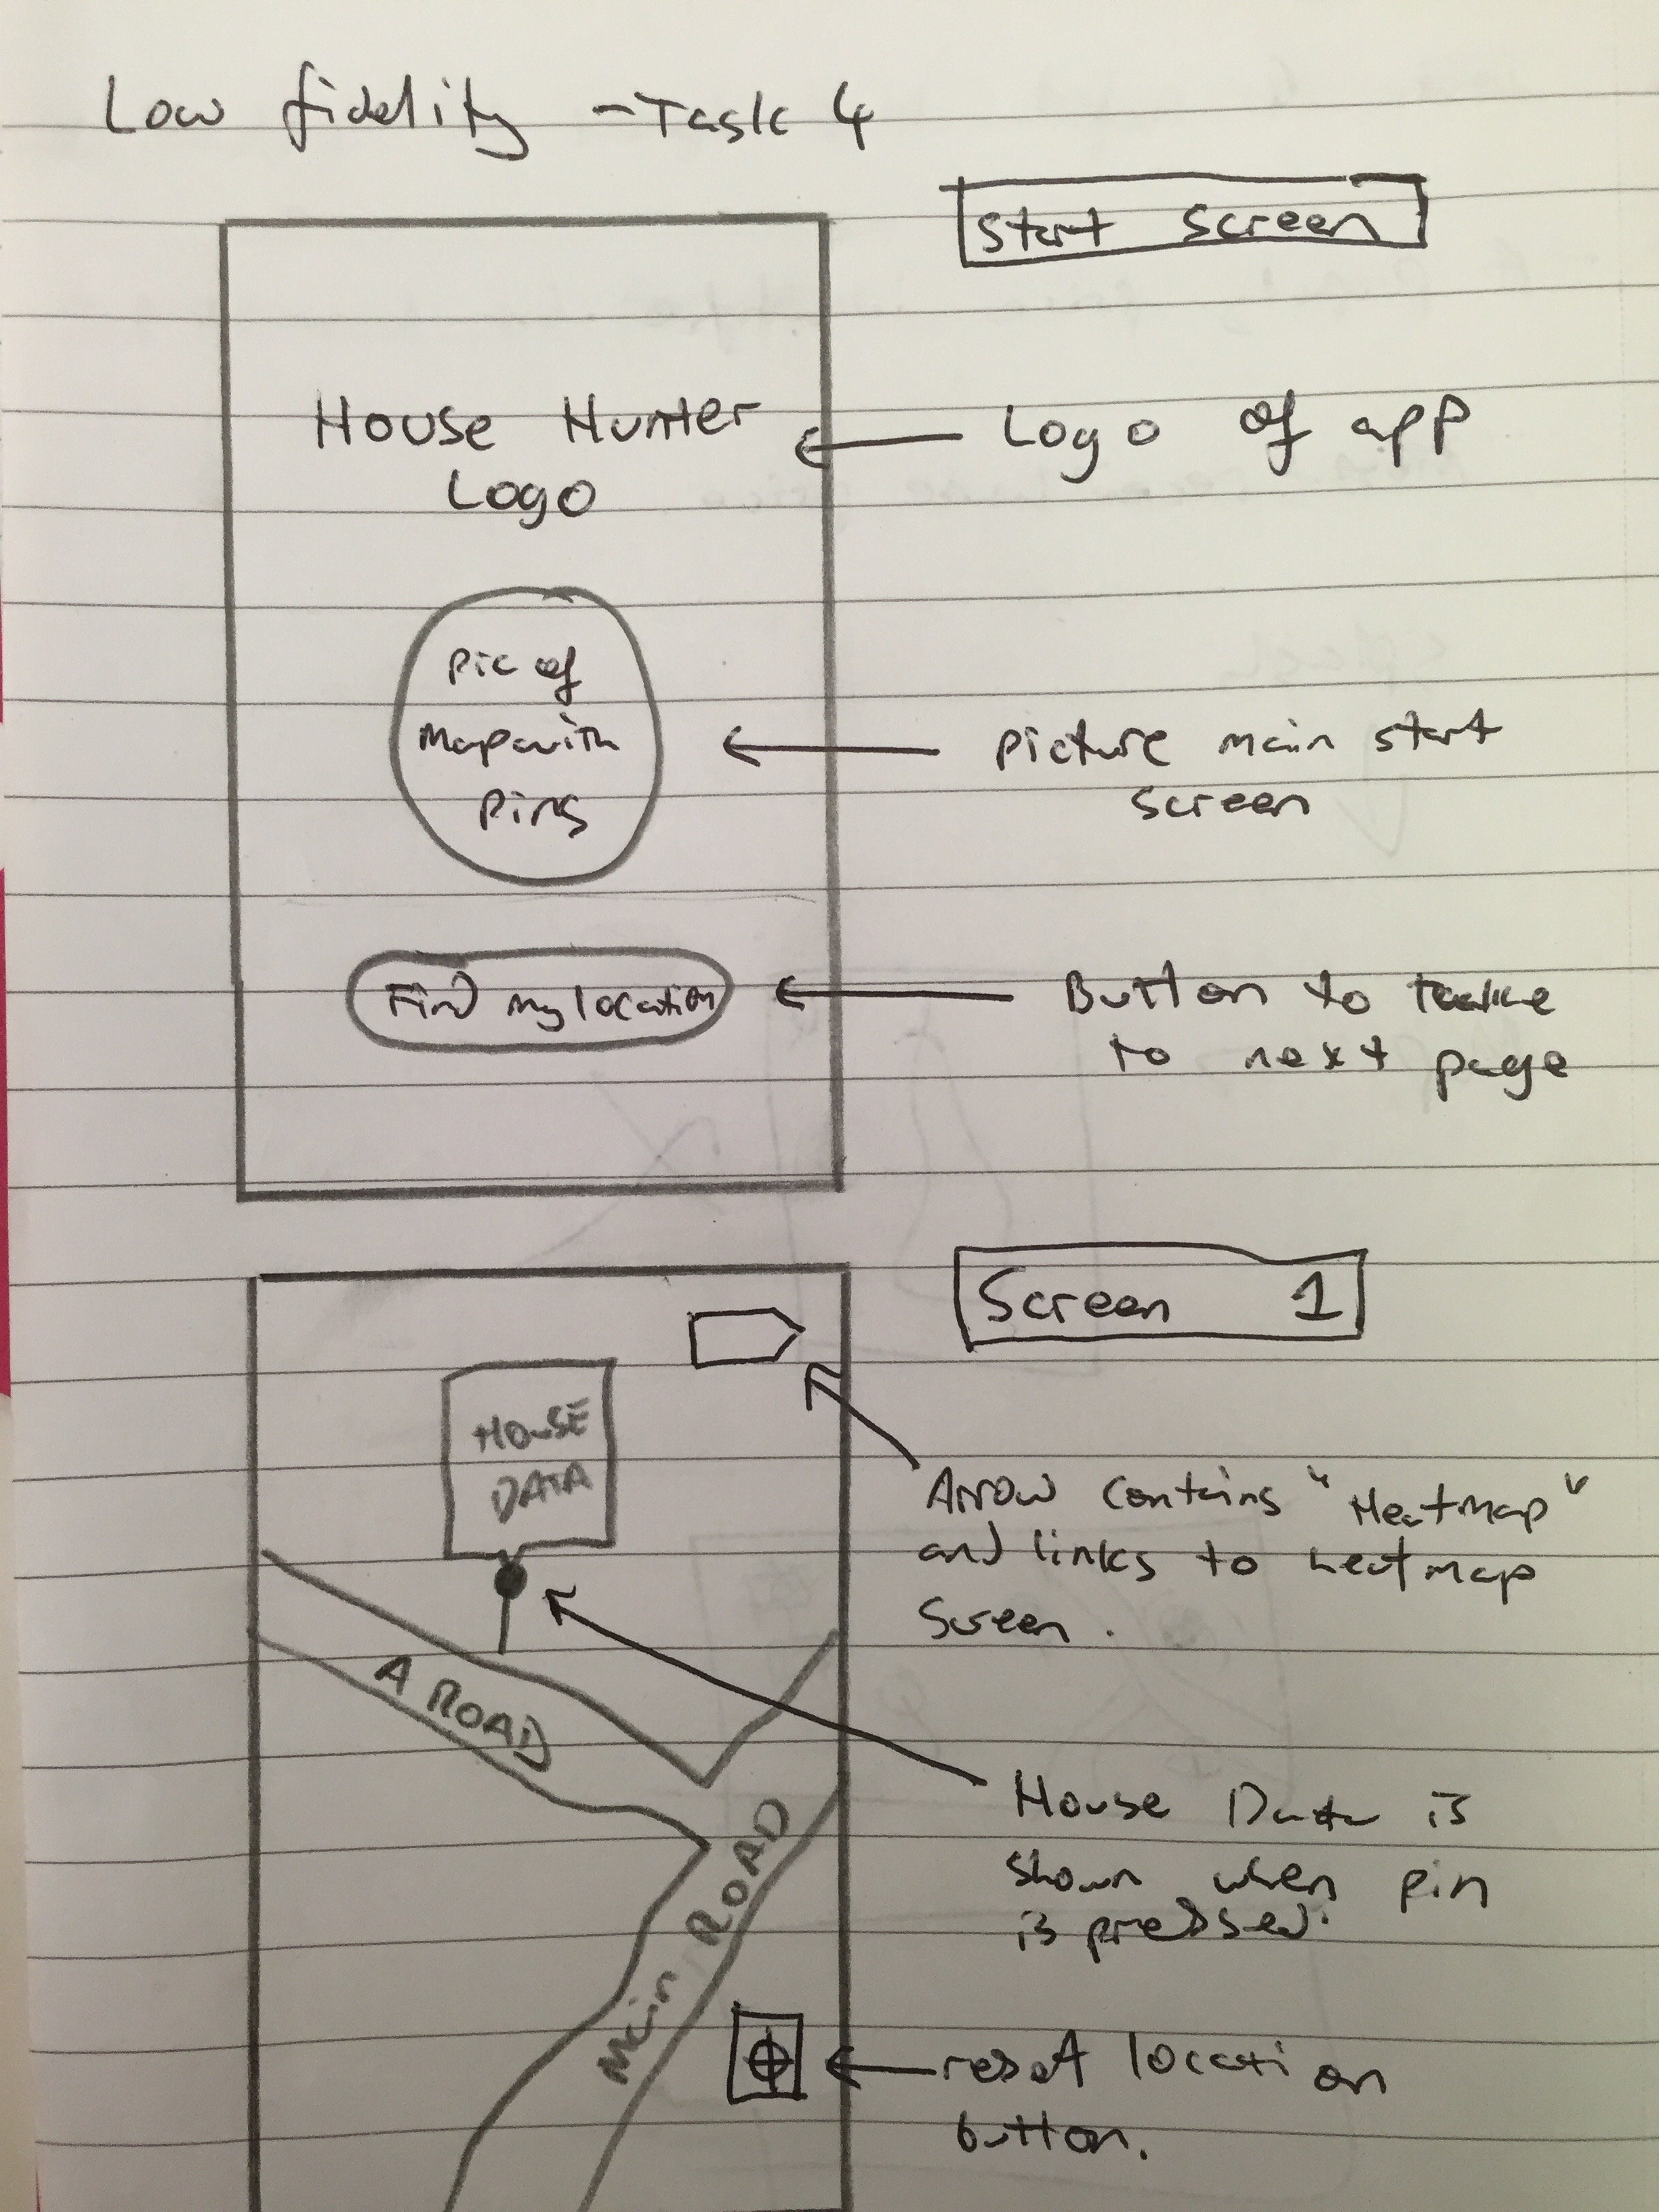 Low fidelity - Task 4
Start Screen
House Hunter
Logo
Logo of app
Pic of
Map with
Pins
picture main start
screen
Find my location
Button to
to next page
Screen 1
HOUSE
DATA
Arrow contains "Heatmap"
and links to heatmap
Screen.
A ROAD
Main ROAD
House Data is
shown when pin
is pressed.
reset location
button.